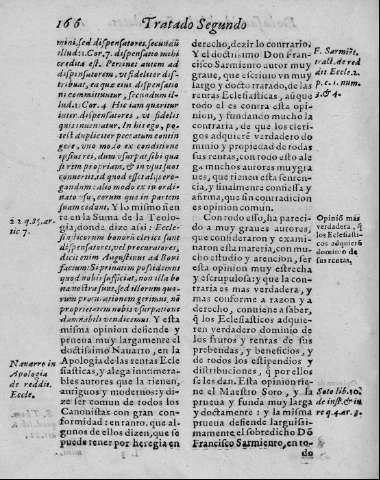 166 Tratado Segundo
mini, sed dispensatores, secundũ
illud: 1. Cor. 7. dispensatio mihi
credita est. Peccunes autem ad
dispensatorem, vt fideliter dis-
tribuat, ea quæ eius dispensatio
ni committuntur, secundum il
lud: 1. Cor. 4. Hic iam queritur
inter dispensatores, vt fidelis
quis inueniatur. In hi ego, po-
test dupliciter peccatum contin
gere, vno modo ex conditione
ipsius rei, dum vsurpat sibi qua
si rem propriam, & in vsus suos
conuertit, ad quod est alijs ero-
gandum: alio modo ex in ordi
nato vsu, eorum quæ in partem
suam cedunt. Y lo mismo tien
re en la Suma de la Teolo-
gia, donde dize assi: Eccle-
siasticorum bonorũ clerici sunt
dispensatores, vel procuratores,
dicit enim Augustinus ad Boni
facium: Si priuatum possidemus
quod nobis sufficiat, non illa bo
na nostra sunt, sed illorum quo-
rum procurationem gerimus, nõ
proprietatem nobis vsurpatione
damnabili vendicemus. Y esta
misma opinion defiende y
prueua muy largamente el
doctissimo Nauarro, en la
Apologia de las rentas Ecle
siasticas, y alega innumera-
bles autores que la tienen,
antiguos y modernos: y di-
ze ser comun de todos los
Canonistas con gran con-
formidad: en tanto, que al-
gunos de ellos dizen, que se
puede tener por heregia en
2 2. q. 85. ar-
tic 7.
Nauarro in
Apologia
de reddit.
Eccle.
derecho, dezir lo contrario.
Y el doctissimo Don Fran-
cisco Sarmiento autor muy
graue, que escriuio vn muy
largo y docto tratado, de las
rentas Eclesiasticas, aũque
todo el es contra esta opi-
nion, y fundando mucho la
contraria, de que los cleri-
gos adquierẽ verdadero do
minio y propiedad de todas
sus rentas, con todo esto ale
ga muchos autores muy gra
ues, que tienen esta senten-
cia, y finalmente confiessa y
afirma, que sin contradicion
es opinion comun.
Con todo esso, ha pareci-
do a muy graues autores,
que consideraron y exami-
naron esta materia, con mu-
cho estudio y atencion, ser
esta opinion muy estrecha
y escrupulosa: y que la con-
traria es mas verdadera, y
mas conforme a razon y a
derecho, conuiene a saber,
q̃ los Eclesiasticos adquie-
ren verdadero dominio de
los frutos y rentas de sus
prebendas, y beneficios, y
de todos los estipendios y
distribuciones, q̃ por ellos
se les dan. Esta opinion tie-
ne el Maestro Soto, y la
prueua y funda muy larga
y doctamente: y la misma
prueua defiende larguissi-
mamente el sobredicho Dõ
Francisco Sarmiento, en to-
do
F. Sarmiẽt.
tract. de red
dit Eccle. 2.
p. c. 1. num.
2. & 4.
Opiniõ mas
verdadera, q̃
los Eclesiasti-
cos adquierẽ
dominio de
sus rentas.
Soto lib. 10.
de iust. & iu
re q. 4. ar. 3.